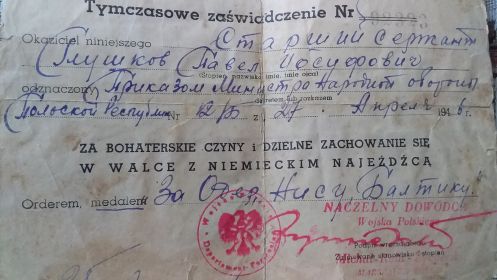 Tymczasowe zaświadczenie Nr
Okaziciel niniejszego Старший сержант
Глушков Павел Иосифович
(Stopień, nazwisko, imię, imię ojca)
odznaczony Приказом Министра Народной обороны
dekretem lub rozkazem
Польской Республики Nr z 27 Апреля 1946 г.
ZA BOHATERSKIE CZYNY i DZIELNE ZACHOWANIE SIĘ
W WALCE Z NIEMIECKIM NAJEŹDŹCĄ
Orderem, medalem "За Одер, Нису, Балтику"
NACZELNY DOWÓDCA
Wojska Polskiego